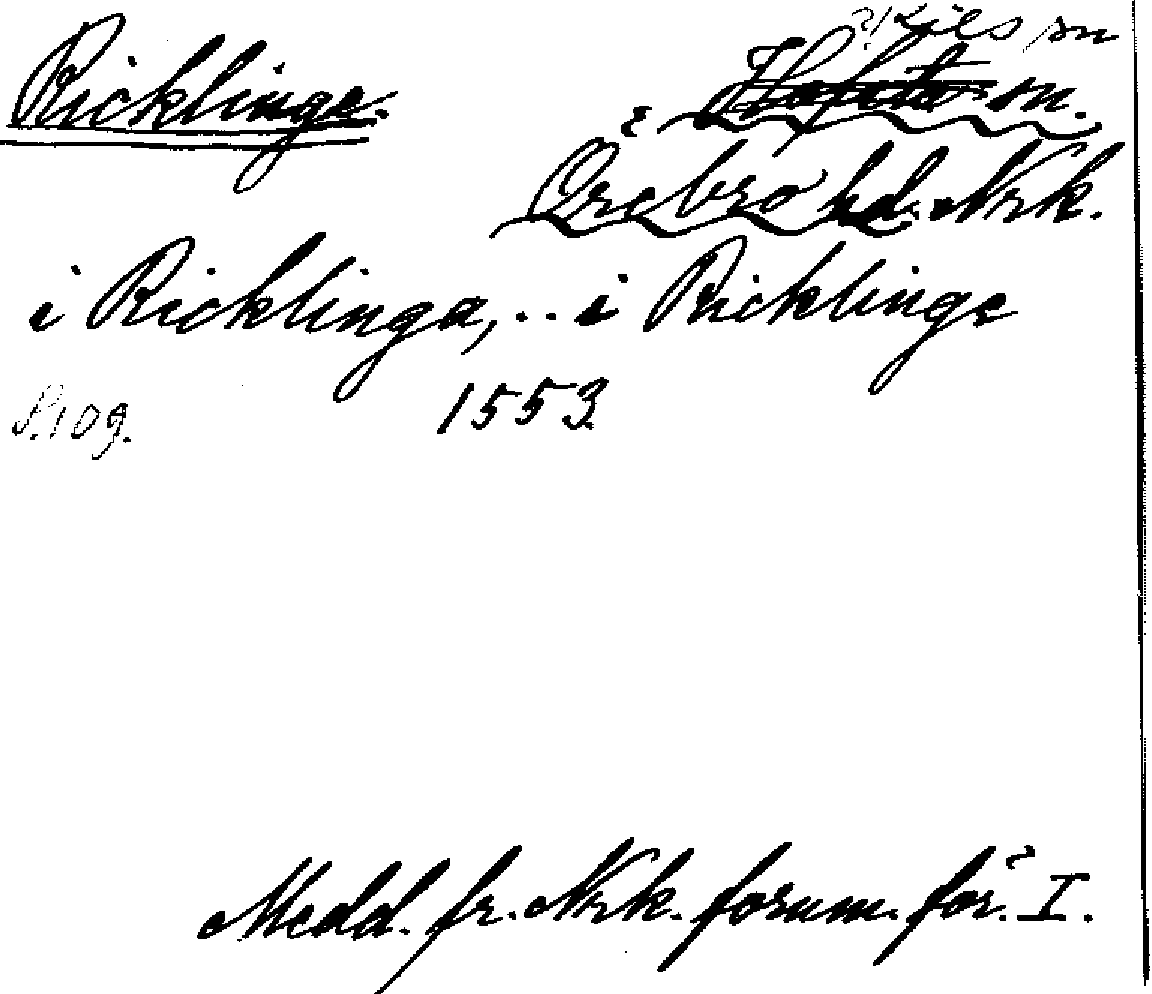 ?/ Kils sn
Ricklinge.
sn.
Örebro hd. Nrk.
i Ricklinga, .. i Ricklinge
S. 109. 1553.
Medd. fr. Nrk. fornm. för. I.